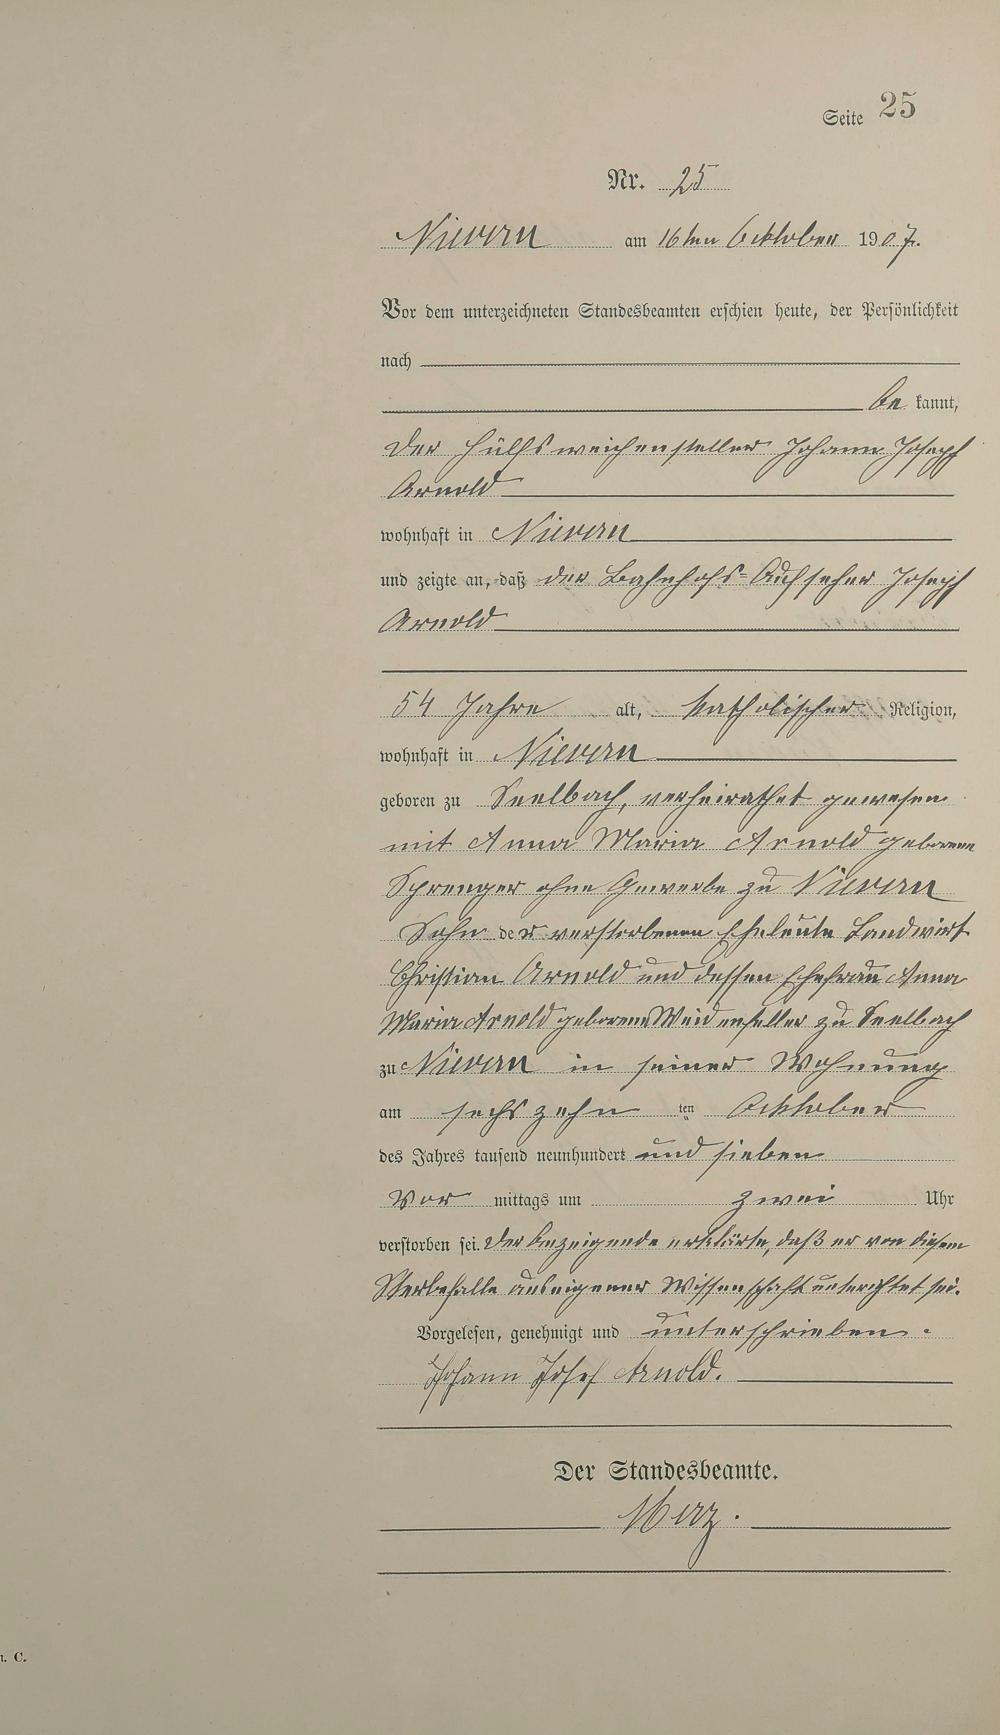 Seite 25
Nr. 25
Nievern am 16ten Oktober 1907.
Vor dem unterzeichneten Standesbeamten erschien heute, der Persönlichkeit
nach
be kannt,
der Hülfsweichensteller Johann Joseph
Arnold
wohnhaft in Nievern
und zeigte an, daß der Bahnhofs-Aufseher Joseph
Arnold
54 Jahre alt, katholischer Religion,
wohnhaft in Nievern
geboren zu Seelbach, verheirathet gewesen
mit Anna Maria Arnold geborene
Sprenger ohne Gewerbe zu Nievern
Sohn der verstorbenen Eheleute Landwirt
Christian Arnold und dessen Ehefrau Anna
Maria Arnold geborene Weidenfeller zu Seelbach
zu Nievern in seiner Wohnung
am sechszehn ten Oktober
des Jahres tausend neunhundert und sieben
Vor mittags um zwei Uhr
verstorben sei. Der Anzeigende erklärte, daß er von diesem
Sterbefalle aus eigener Wissenschaft unterrichtet sei.
Vorgelesen, genehmigt und unterschrieben.
Johann Josef Arnold.
Der Standesbeamte.
Merz.
n. C.